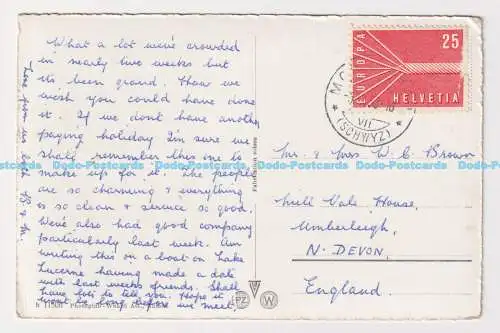 What a lot we've crowded
in nearly two weeks but
its been grand. How we
wish you could have done
it. If we dont have another
paying holiday I'm sure we
shall remember this one to
make up for it. The people
are so charming & everything
is so clean & service so good.
We've also had good company
particularly last week. Am
writing this on a boat on Lake
Lucerne having made a date
with last weeks friends. Shall
have lots to tell you. Hope it
wont be long before we meet.
Love from us both
EUROPA
25
HELVETIA
VII
(SCHWYZ)
Mr. & Mrs W. C. Brown
Mill Vale House,
Umberleigh,
N. DEVON.
England.
Photoglob-Wehrli
PZ W
Dodo-Postcards Dodo-Postcards Dodo-Postcards Dodo-Postcards